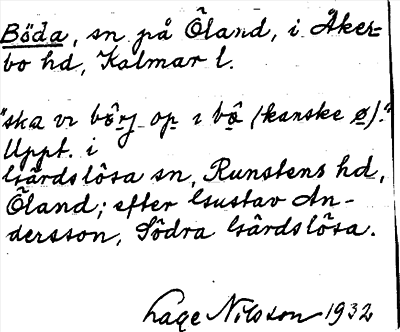 Böda, sn på Öland, i Åker=
bo hd, Kalmar l.
"ska vi börj op i bö (kanske ø)."
Uppt. i
Gärdslösa sn, Runstens hd,
Öland; efter Gustav An-
dersson, Södra Gärdslösa.
Lage Nilsson 1932